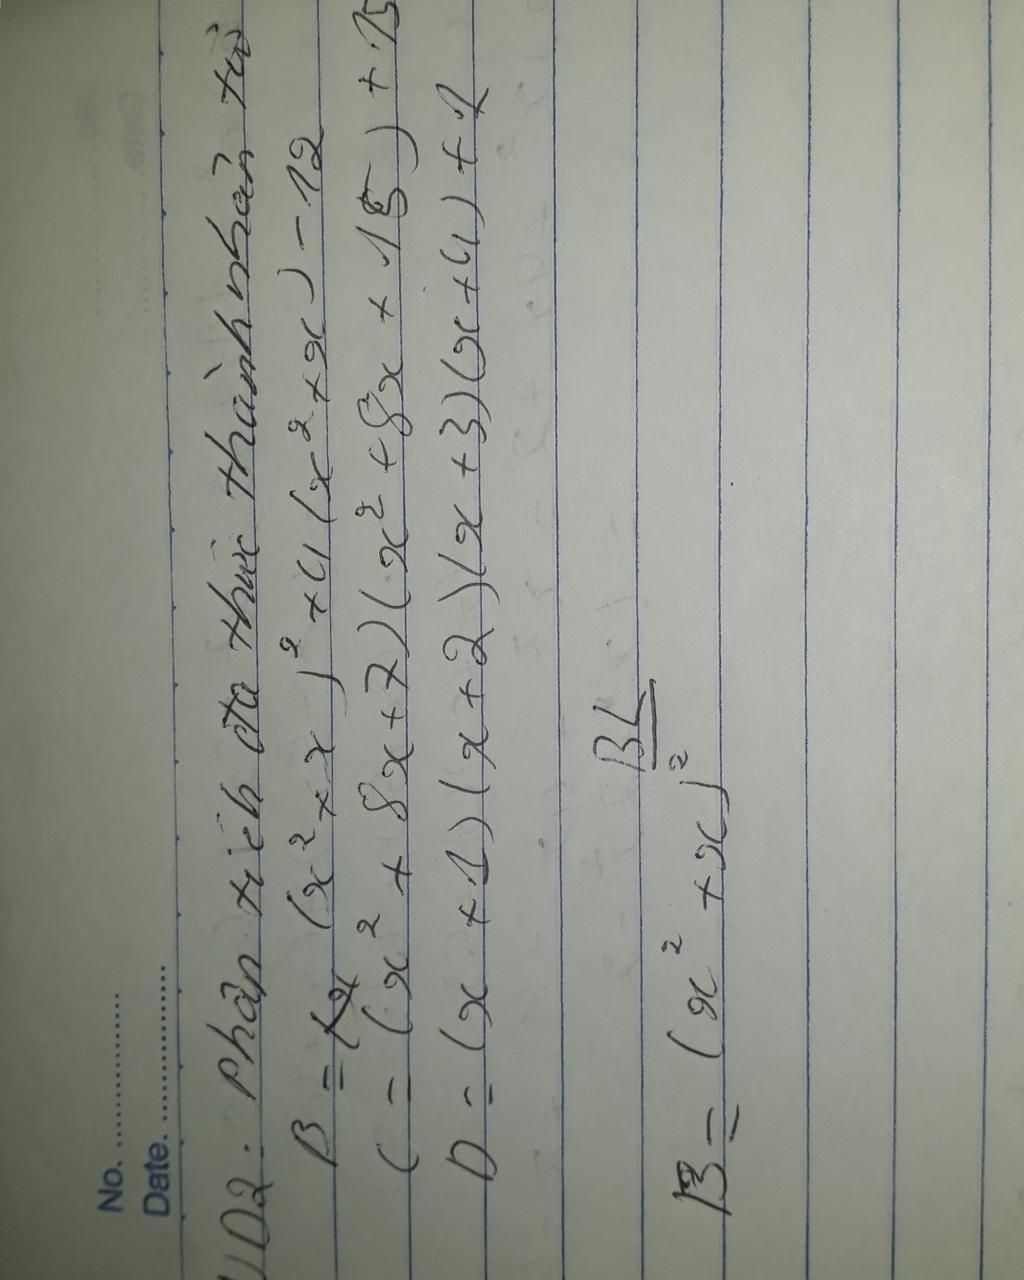 No. ..................
Date. ..................
VD2. Phân tích đa thức thành nhân tử
B = (x² + x)² + 4(x² + x) - 12
C = (x² + 8x + 7)(x² + 8x + 15) + 15
D = (x + 1)(x + 2)(x + 3)(x + 4) + 1
BL
B = (x² + x)²